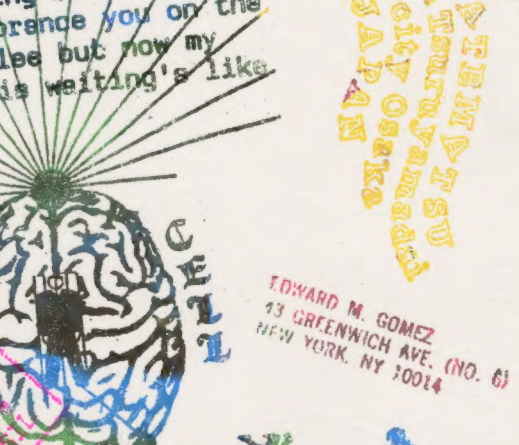 orance you on the
lee but now my
is waiting's like
TEMATSU
Tsuruyamadai
city Osaka
JAPAN
CELL
EDWARD M. GOMEZ
13 GREENWICH AVE. (NO. 6)
NEW YORK, NY 10014